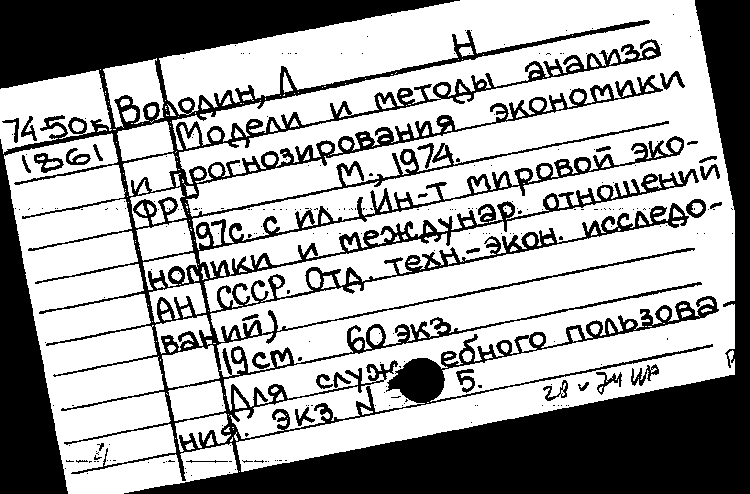 74-50к
1861
Володин, Л Н
Модели и методы анализа
и прогнозирования экономики
ФРГ. М., 1974.
97с. с ил. (Ин-т мировой эко-
номики и междунар. отношений
АН СССР. Отд. техн.-экон. исследо-
ваний).
19см. 60 экз.
Для служебного пользова-
ния. экз. N 5.